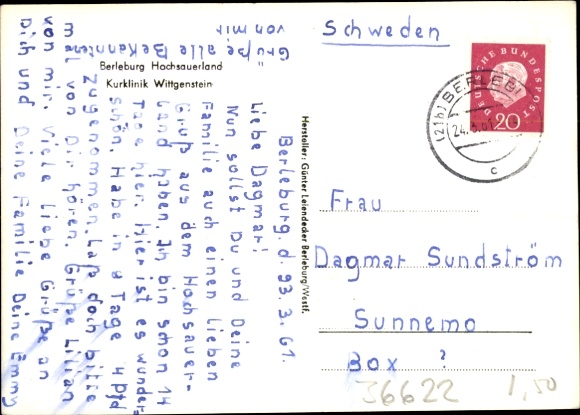 Schweden
Berleburg Hochsauerland
Kurklinik Wittgenstein
Hersteller: Günter Leiendecker Berleburg/Westf.
DEUTSCHE BUNDESPOST
20
(21b) BERLEBURG
c
Berleburg. d. 23. 3. 61.
Liebe Dagmar!
Nun sollst Du und Deine
Familie auch einen lieben
Gruß aus dem Hochsauer-
land haben. Ich bin schon 14
Tage hier. Hier ist es wunder-
schön. Habe in 8 Tage 4 Pfd
zugenommen. Laß doch bitte
mal von Dir hören. Grüße Lilian
von mir. Viele liebe Grüße an
Dich und Deine Familie Deine Emmy
Grüße alle Bekannten
von mir
Frau
Dagmar Sundström
Sunnemo
Box ?
36622
1,50